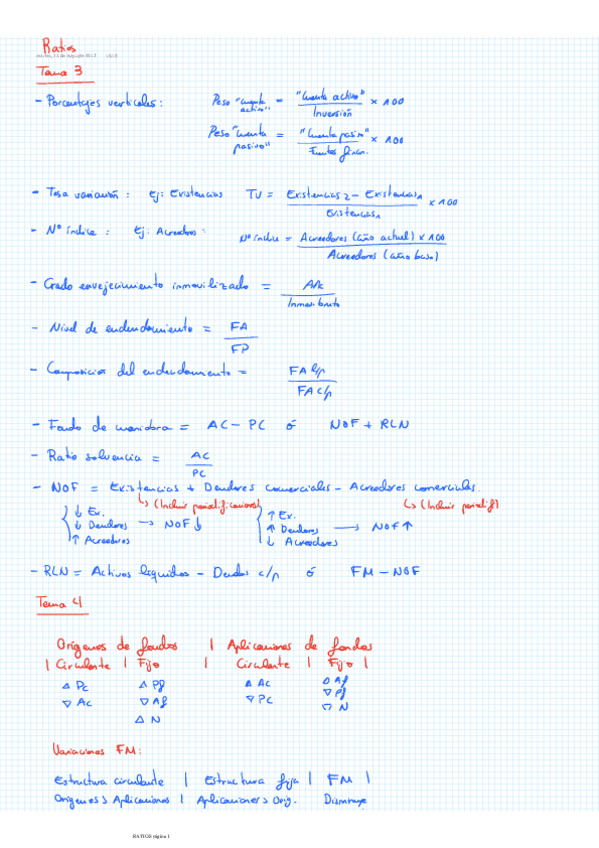 Ratios
Tema 3
- Porcentajes verticales: Peso "cuenta activo" = "Cuenta activo" / Inversión × 100
Peso "cuenta pasivo" = "Cuenta pasivo" / Fuentes finan. × 100
- Tasa variación: Ej: Existencias TV = Existencias2 - Existencias1 / Existencias1 × 100
- Nº índice: Ej: Acreedores: Nº índice = Acreedores (año actual) × 100 / Acreedores (año base)
- Grado envejecimiento inmovilizado = / Inmov. bruto
- Nivel de endeudamiento = FA / FP
- Composición del endeudamiento = FA l/p / FA c/p
- Fondo de maniobra = AC - PC ó NOF + RLN
- Ratio solvencia = AC / PC
- NOF = Existencias + Deudores comerciales - Acreedores comerciales.
↳ (Incluir periodificaciones) ↳ (Incluir periodif)
↓ Ex. ↑ Ex.
↓ Deudores → NOF ↓ ↑ Deudores → NOF ↑
↑ Acreedores ↓ Acreedores
- RLN = Activos líquidos - Deudas c/p ó FM - NOF
Tema 4
Orígenes de fondos | Aplicaciones de fondos
| Circulante | Fijo | Circulante | Fijo |
△ Pc △ Pf △ Ac △ Af
▽ Ac ▽ Af ▽ PC ▽ Pf
△ N ▽ N
Variaciones FM:
Estructura circulante | Estructura fija | FM |
Orígenes > Aplicaciones | Aplicaciones > Orig. Disminuye
RATIOS página 1